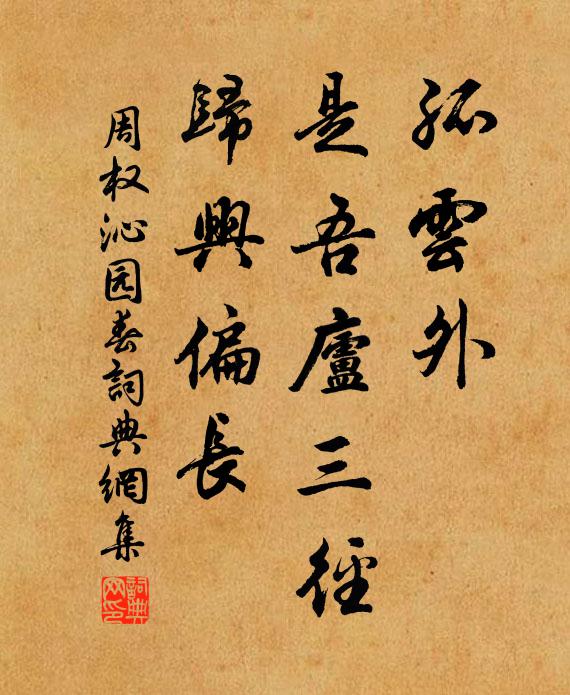 孤雲外
是吾廬三徑
歸興偏長
周权沁园春詞典網集
詞典網印